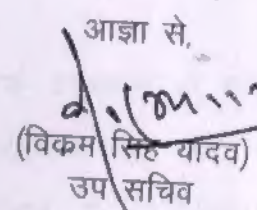 आज्ञा से,
(विक्रम सिंह यादव)
उप सचिव